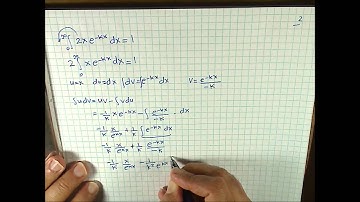 2
∫₀^∞ 2x e^{-kx} dx = 1
2 ∫₀^∞ x e^{-kx} dx = 1
u=x du=dx ∫dv=∫e^{-kx} dx v = e^{-kx}/-k
∫udv = uv - ∫vdu
= -1/k x e^{-kx} - ∫ e^{-kx}/-k · dx
-1/k x/e^{kx} + 1/k ∫ e^{-kx} dx
-1/k x/e^{kx} + 1/k e^{-kx}/-k
-1/k x/e^{kx} - 1/k² e^{kx}